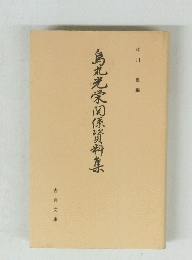 烏丸光栄関係資料集
古典文庫